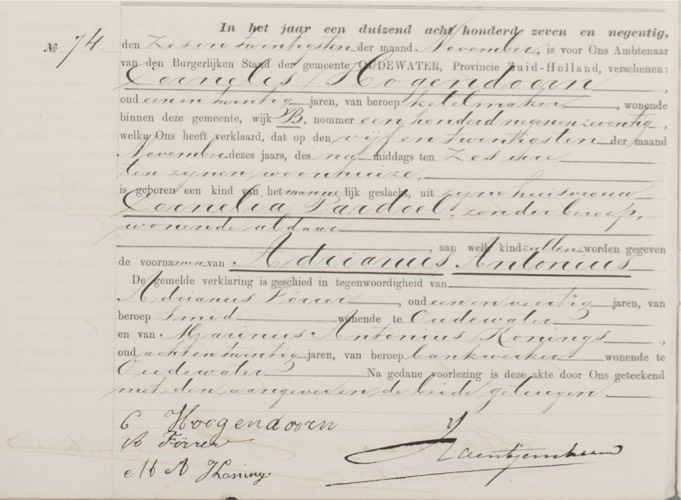 In het jaar een duizend acht honderd zeven en negentig,
№ 74
den zes en twintigsten der maand November, is voor Ons Ambtenaar
van den Burgerlijken Stand der gemeente OUDEWATER, Provincie Zuid-Holland, verschenen:
Cornelis Hogendoorn
oud een en twintig jaren, van beroep ketelmaker, wonende
binnen deze gemeente, wijk B, nommer een honderd negen en zeventig,
welke Ons heeft verklaard, dat op den vijf en twintigsten der maand
November dezes jaars, des na middags ten zes ure
ten zijnen woonhuize,
is geboren een kind van het manne lijk geslacht, uit zijne huisvrouw
Cornelia Pardoel, zonder beroep,
wonende aldaar
, aan welk kind zullen worden gegeven
de voornamen van Adrianus Antonius
De gemelde verklaring is geschied in tegenwoordigheid van
Adrianus Förrer, oud een en veertig jaren, van
beroep smid wonende te Oudewater
en van Marinus Antonius Konings,
oud acht en twintig jaren, van beroep bankwerker wonende te
Oudewater. Na gedane voorlezing is deze akte door Ons geteekend
met den aangever en de beide getuigen.
C Hoogendoorn
A Förrer
M A Koning